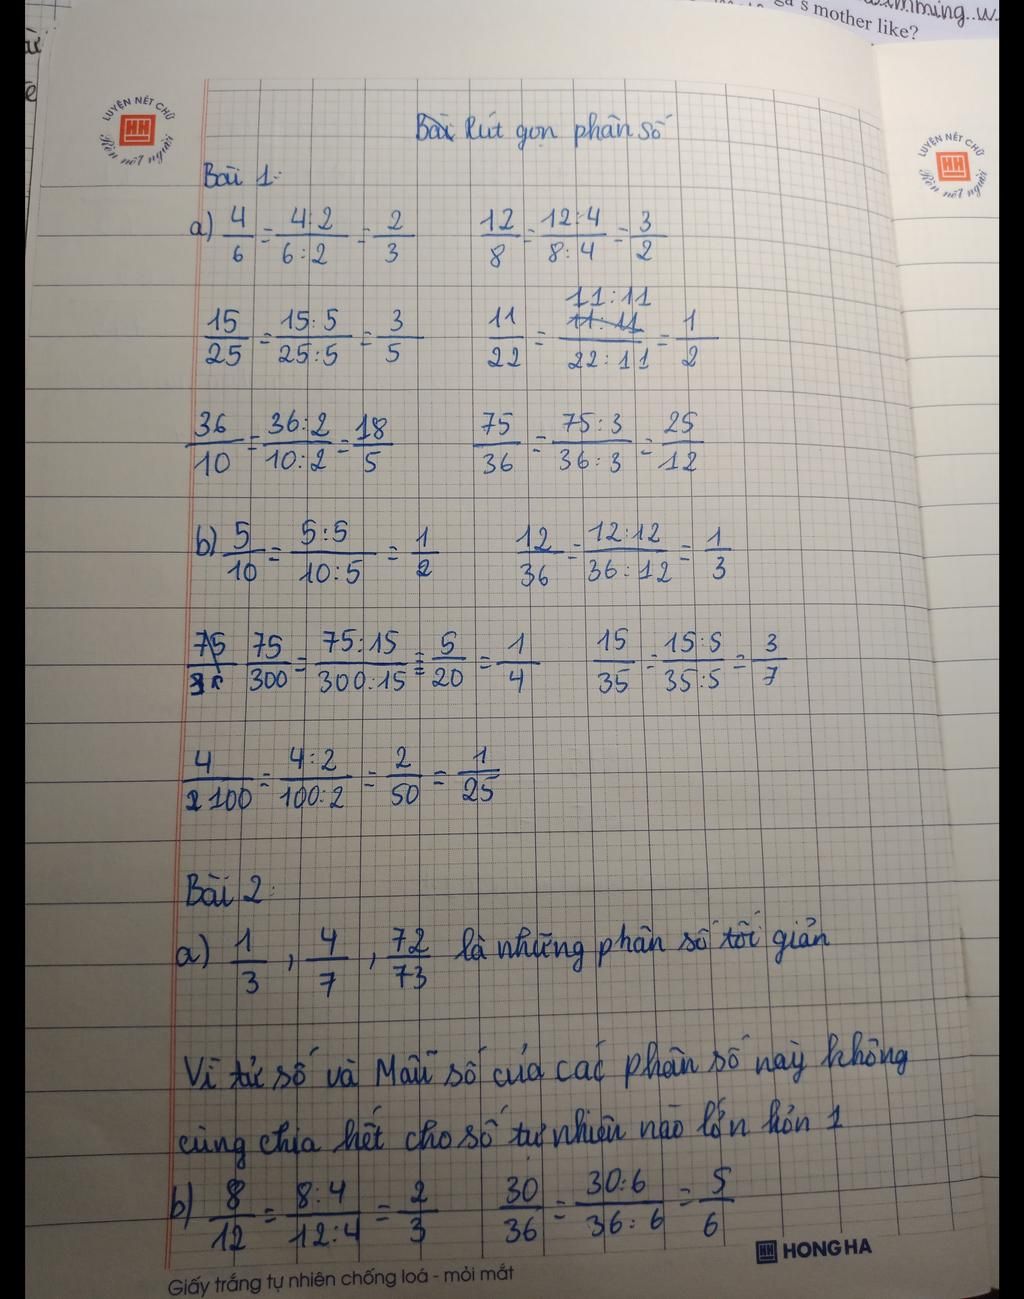 s mother like?
LUYỆN NÉT CHỮ
Rèn nết người
HH
LUYỆN NÉT CHỮ
Rèn nết người
HH
Bài Rút gọn phân số
Bài 1:
a) 4/6 = 4:2/6:2 = 2/3 12/8 = 12:4/8:4 = 3/2
15/25 = 15:5/25:5 = 3/5 11/22 = 11:11/22:11 = 1/2
36/10 = 36:2/10:2 = 18/5 75/36 = 75:3/36:3 = 25/12
b) 5/10 = 5:5/10:5 = 1/2 12/36 = 12:12/36:12 = 1/3
75/300 = 75:15/300:15 = 5/20 = 1/4 15/35 = 15:5/35:5 = 3/7
4/100 = 4:2/100:2 = 2/50 = 1/25
Bài 2:
a) 1/3, 4/7, 72/73 là những phân số tối giản
Vì tử số và Mẫu số của các phân số này không
cùng chia hết cho số tự nhiên nào lớn hơn 1
b) 8/12 = 8:4/12:4 = 2/3 30/36 = 30:6/36:6 = 5/6
HH HONG HA
Giấy trắng tự nhiên chống loá - mỏi mắt